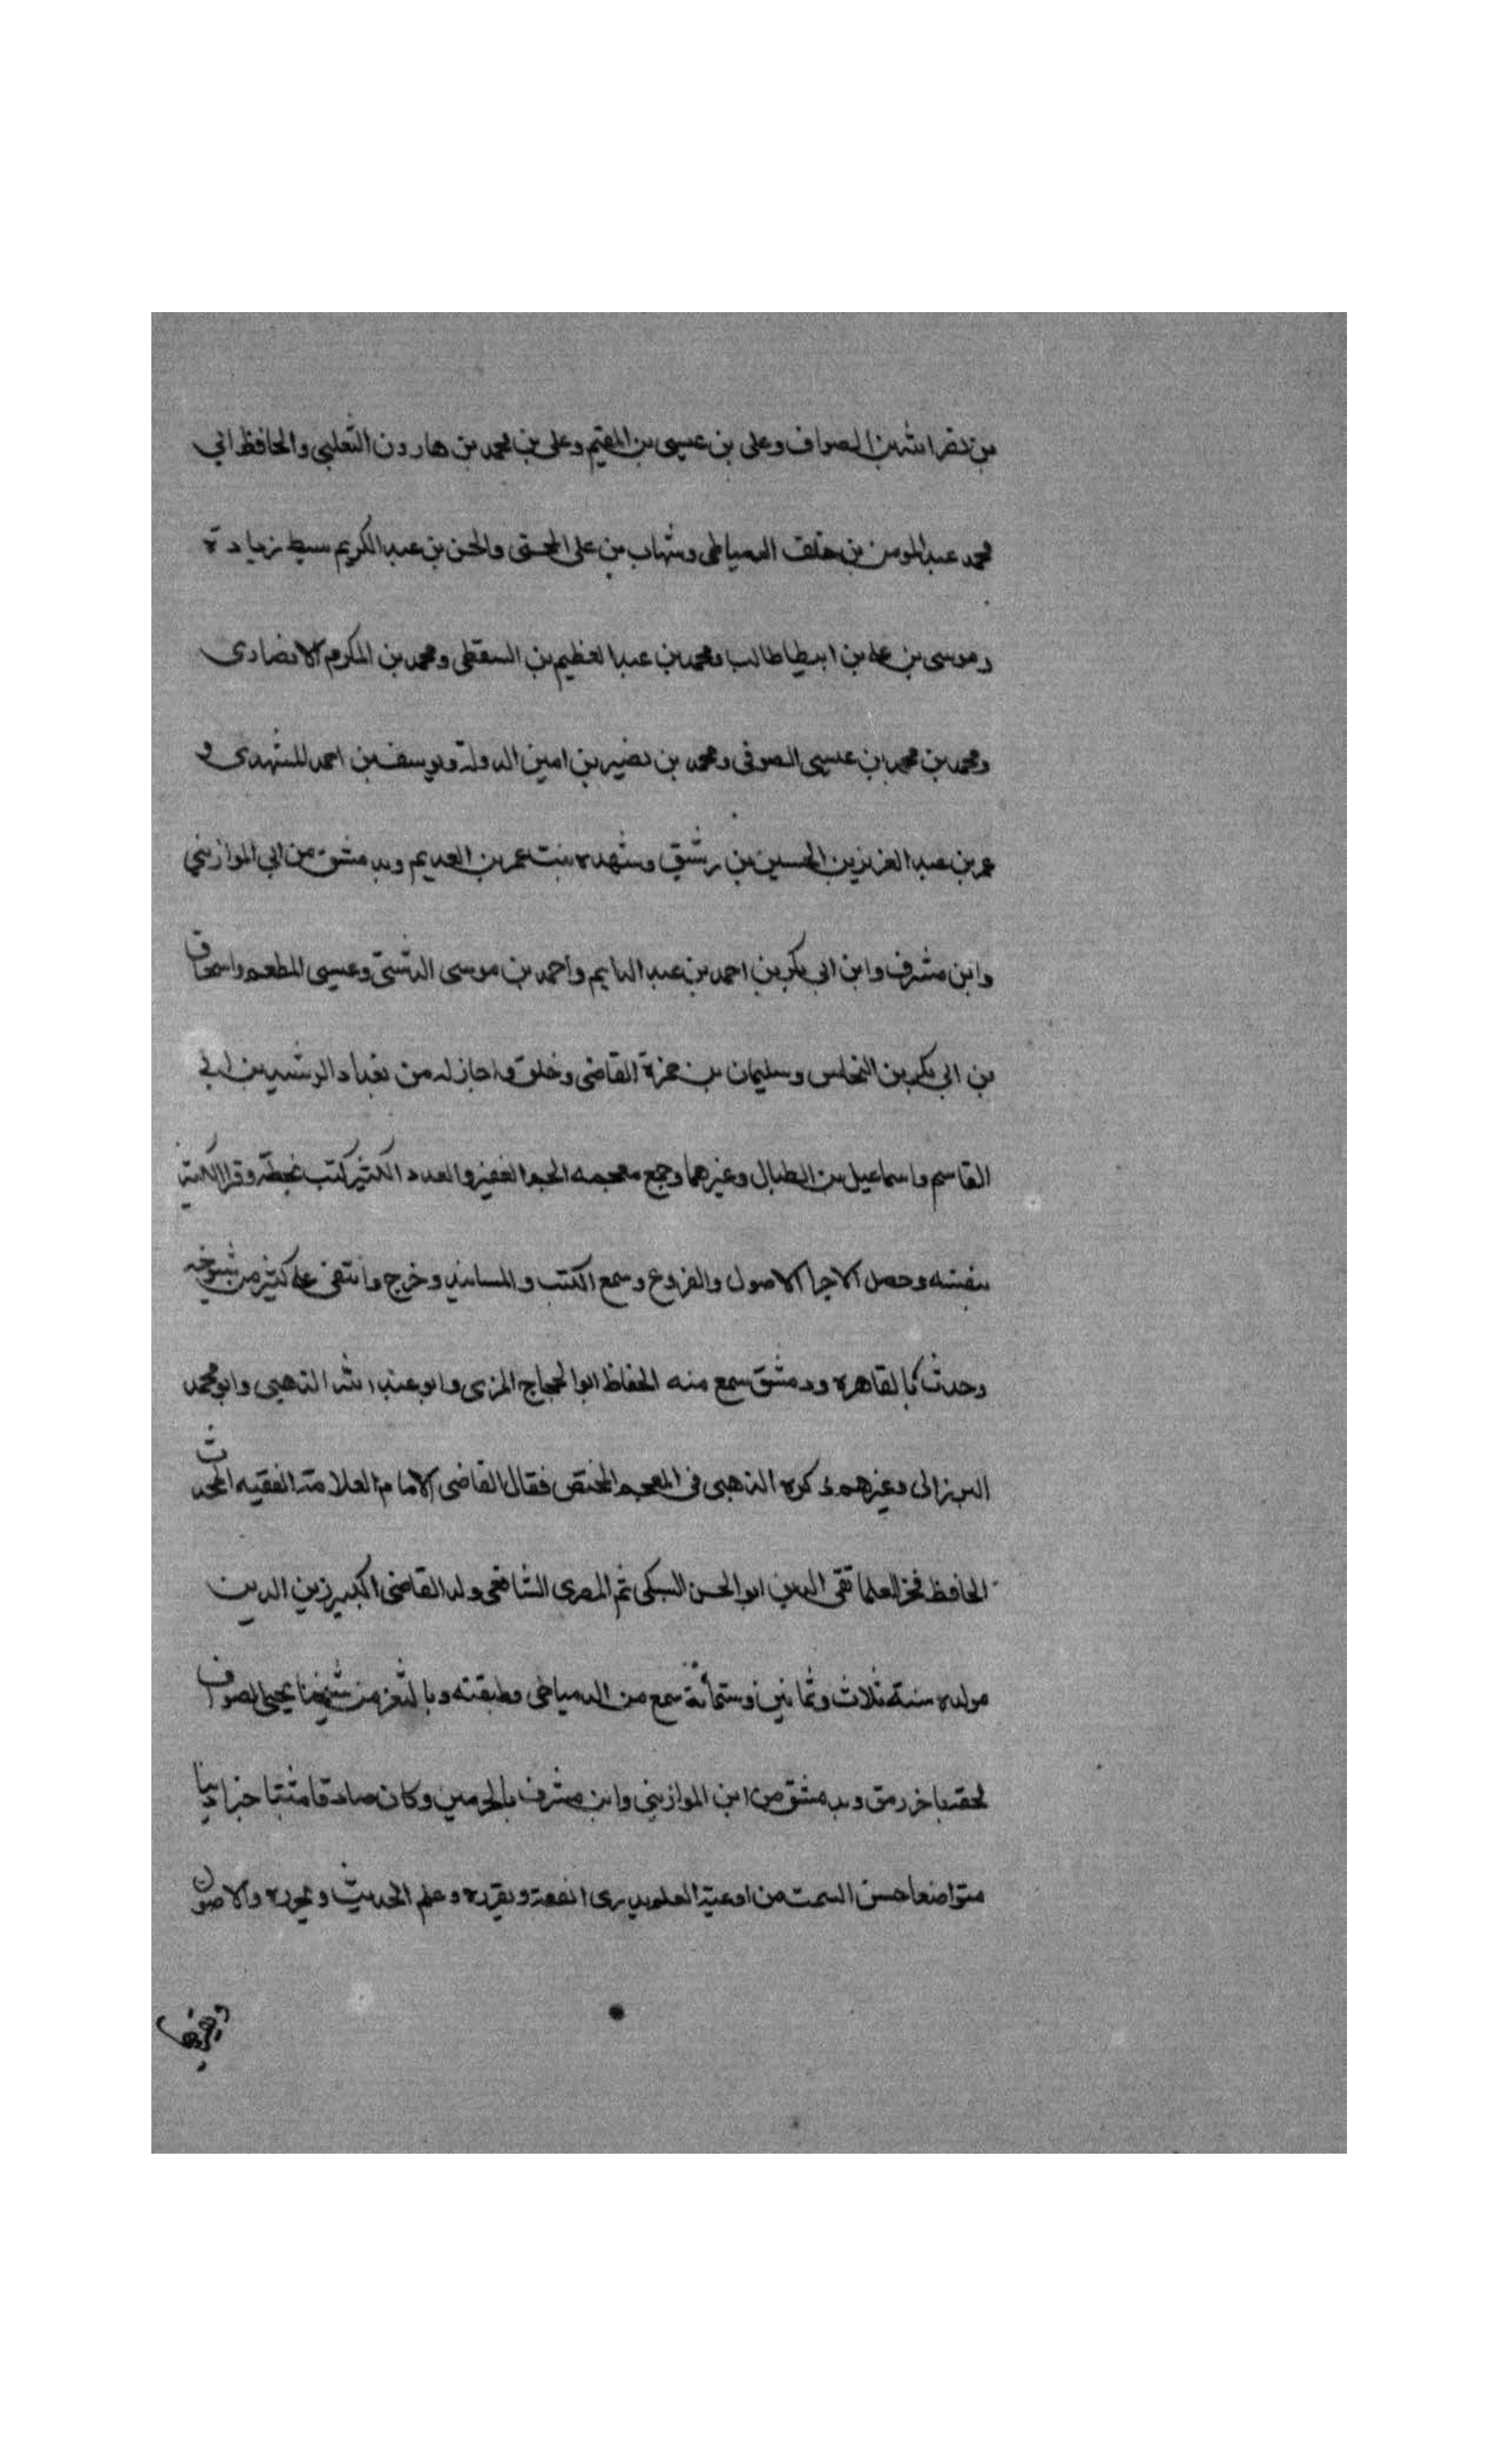 بن نصر الله بن الصواف وعلى بن عيسى بن القيم وعلى بن محمد بن هارون الثعلبى والحافظ ابي
محمد عبد المومن بن خلف الدمياطى وشهاب بن على المحسنى والحسن بن عبد الكريم سبط زيادة
وموسى بن على بن ابيطا طالب ومحمد بن عبد العظيم بن السقطى ومحمد بن المكرم الانصارى
ومحمد بن محمد بن عيسى الصوفى ومحمد بن نصير بن امين الدولة ويوسف بن احمد المشهدى و
عمر بن عبد العزيز بن الحسين بن رشيق وشهده بنت عمر بن العديم وبدمشق من ابي الموازيني
وابن مشرف وابن ابى بكر بن احمد بن عبد الدايم واحمد بن موسى الدشتى وعيسى المطعم واسحاق
بن ابى بكر بن النحاس وسليمان بن حمزة القاضى وخلق واجاز له من بغداد الرشيد بن ابى
القاسم واسماعيل بن الطبال وغيرهما وجمع معجمه الجم الغفير والعدد الكثير كتب بخطه وقرا الكثير
بنفسه وحصل الاجزا الاصول والفروع وسمع الكتب والمسانيد وخرج وانتقى على كثير من شيوخه
وحدث بالقاهره ودمشق سمع منه الحفاظ ابوا الحجاج المزى وابو عبد الله الذهبى وابو محمد
البرزالى وغيرهم ذكره الذهبى فى المعجم المختص فقال القاضى الامام العلامة الفقيه المحدث
الحافظ فخر العلما تقى الدين ابو الحسن السبكى ثم المصرى الشافعى ولد القاضى الكبير زين الدين
مولده سنة ثلاث وثمانين وستمائة سمع من الدمياطى وطبقته وبالثغر من شيخنا يحيى الصواف
لحقه باخر رمق وبدمشق من ابن الموازيني وابن مشرف بالحرمين وكان صادقا متثبتا خيرا دينا
متواضعا حسن السمت من اوعية العلم يدرى الفقه ويقرره وعلم الحديث ويحرره والاصول